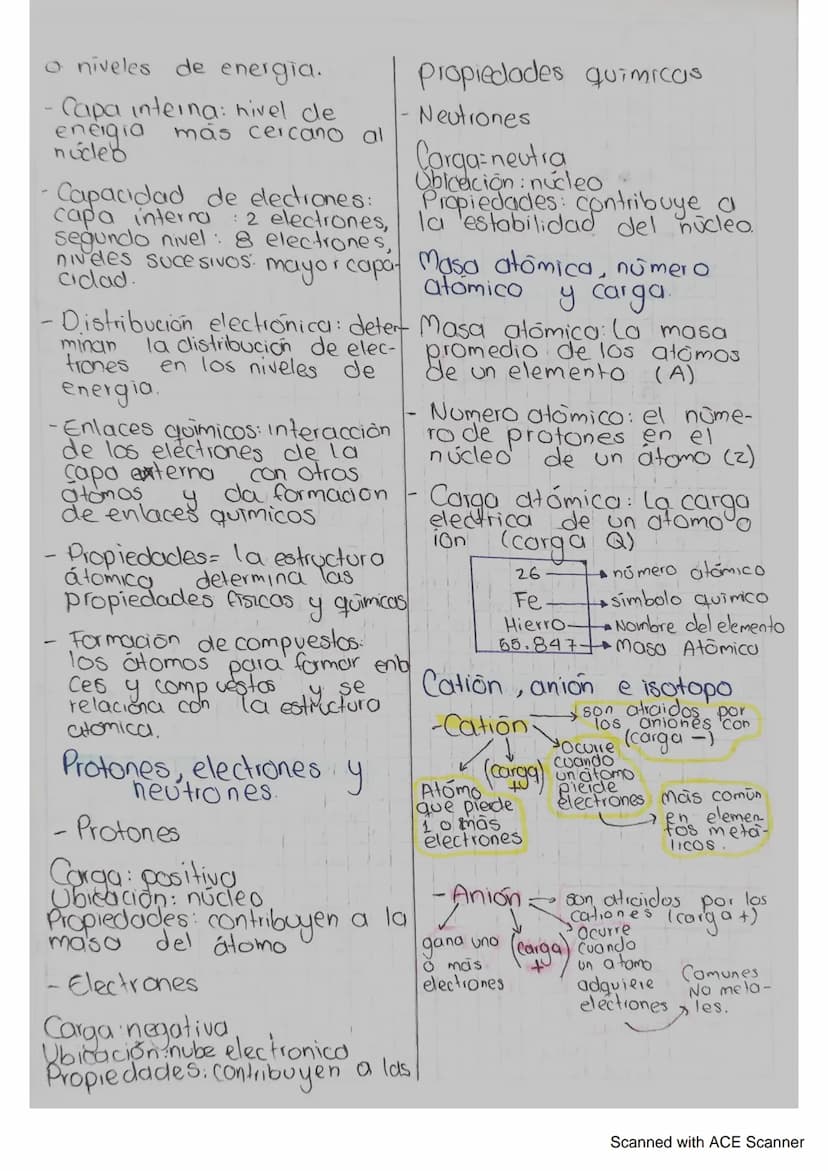 o niveles de energia.
- Capa interna: nivel de
energia más cercano al
núcleo
- Capacidad de electrones:
capa interna : 2 electrones,
segundo nivel : 8 electrones,
niveles sucesivos: mayor capa-
cidad.
- Distribución electrónica: deter-
minan la distribución de elec-
trones en los niveles de
energia.
- Enlaces químicos: interacción
de los electrones de la
capa externa con otros
átomos y da formacion
de enlaces químicos
- Propiedades= la estructura
átomica determina las
propiedades físicas y químicas
- Formación de compuestos:
los átomos para formar enla
ces y compuestos y se
relaciona con la estructura
atomica.
Protones, electrones y
neutrones.
- Protones
Carga: positiva
Ubicación: núcleo
Propiedades: contribuyen a la
masa del átomo
- Electrones
Carga: negativa
Ubicación: nube electronica
Propiedades: contribuyen a las
propiedades químicas
- Neutrones
Carga= neutra
Ubicación: núcleo
Propiedades: contribuye a
la estabilidad del núcleo.
Masa atómica, número
atómico y carga.
Masa atómica: La masa
promedio de los atómos
de un elemento (A)
- Numero atómico: el núme-
ro de protones en el
núcleo de un átomo (z)
- Carga atómica: La carga
electrica de un atomo o
ión (carga Q)
26 → número atómico
Fe → símbolo químico
Hierro → Nombre del elemento
55.847 → Masa Atómica
Catión, anión e isotopo
- Catión → son atraidos por
los aniones con
(carga -)
(carga
+)
ocurre
cuando
un átomo
pierde
electrones
Atómo
que piede
1 o más
electrones
Más común
en elemen
tos metá-
licos.
- Anión → son atraidos por los
cationes (carga +)
gana uno
o más
electrones
(carga
+)
ocurre
cuando
un atomo
adquiere
electrones
Comunes
No meta-
les.
Scanned with ACE Scanner